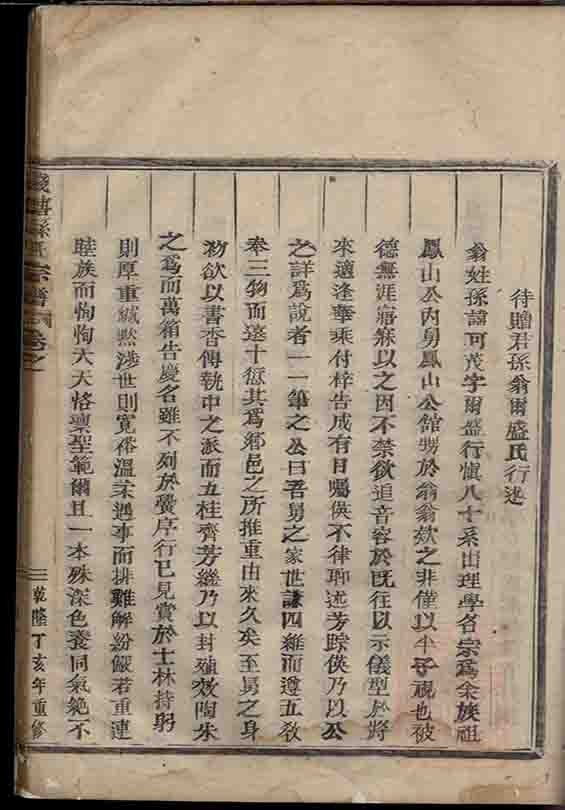 待贈君孫翁爾盛氏行述
翁姓孫諱可茂字爾盛行愼八十系出理學名宗爲余族祖
鳳山公內舅鳳山公館甥於翁翁欸之非僅以半子視也彼
德無涯寤寐以之因不禁欲追音容於旣往以示儀型於將
來適逢華乗付梓告成有日囑俟不律聊述芳踪俟乃以公
之詳爲說者一一筆之公曰吾舅之家世謙四維而遵五敎
奉三物而遠十愆其爲鄕邑之所推重由來久矣至舅之身
初欲以書香傳執中之派而五桂齊芳繼乃以封殖效陶朱
之爲而萬箱告慶名雖不列於黌序行已見賞於士林持躬
則厚重緘默涉世則寬裕溫柔遇事而排難解紛儼若重連
睦族而恂恂夭夭恪稟聖範爾且一本殊深色養同氣絶不
孫氏宗譜 卷之
乾隆丁亥年重修